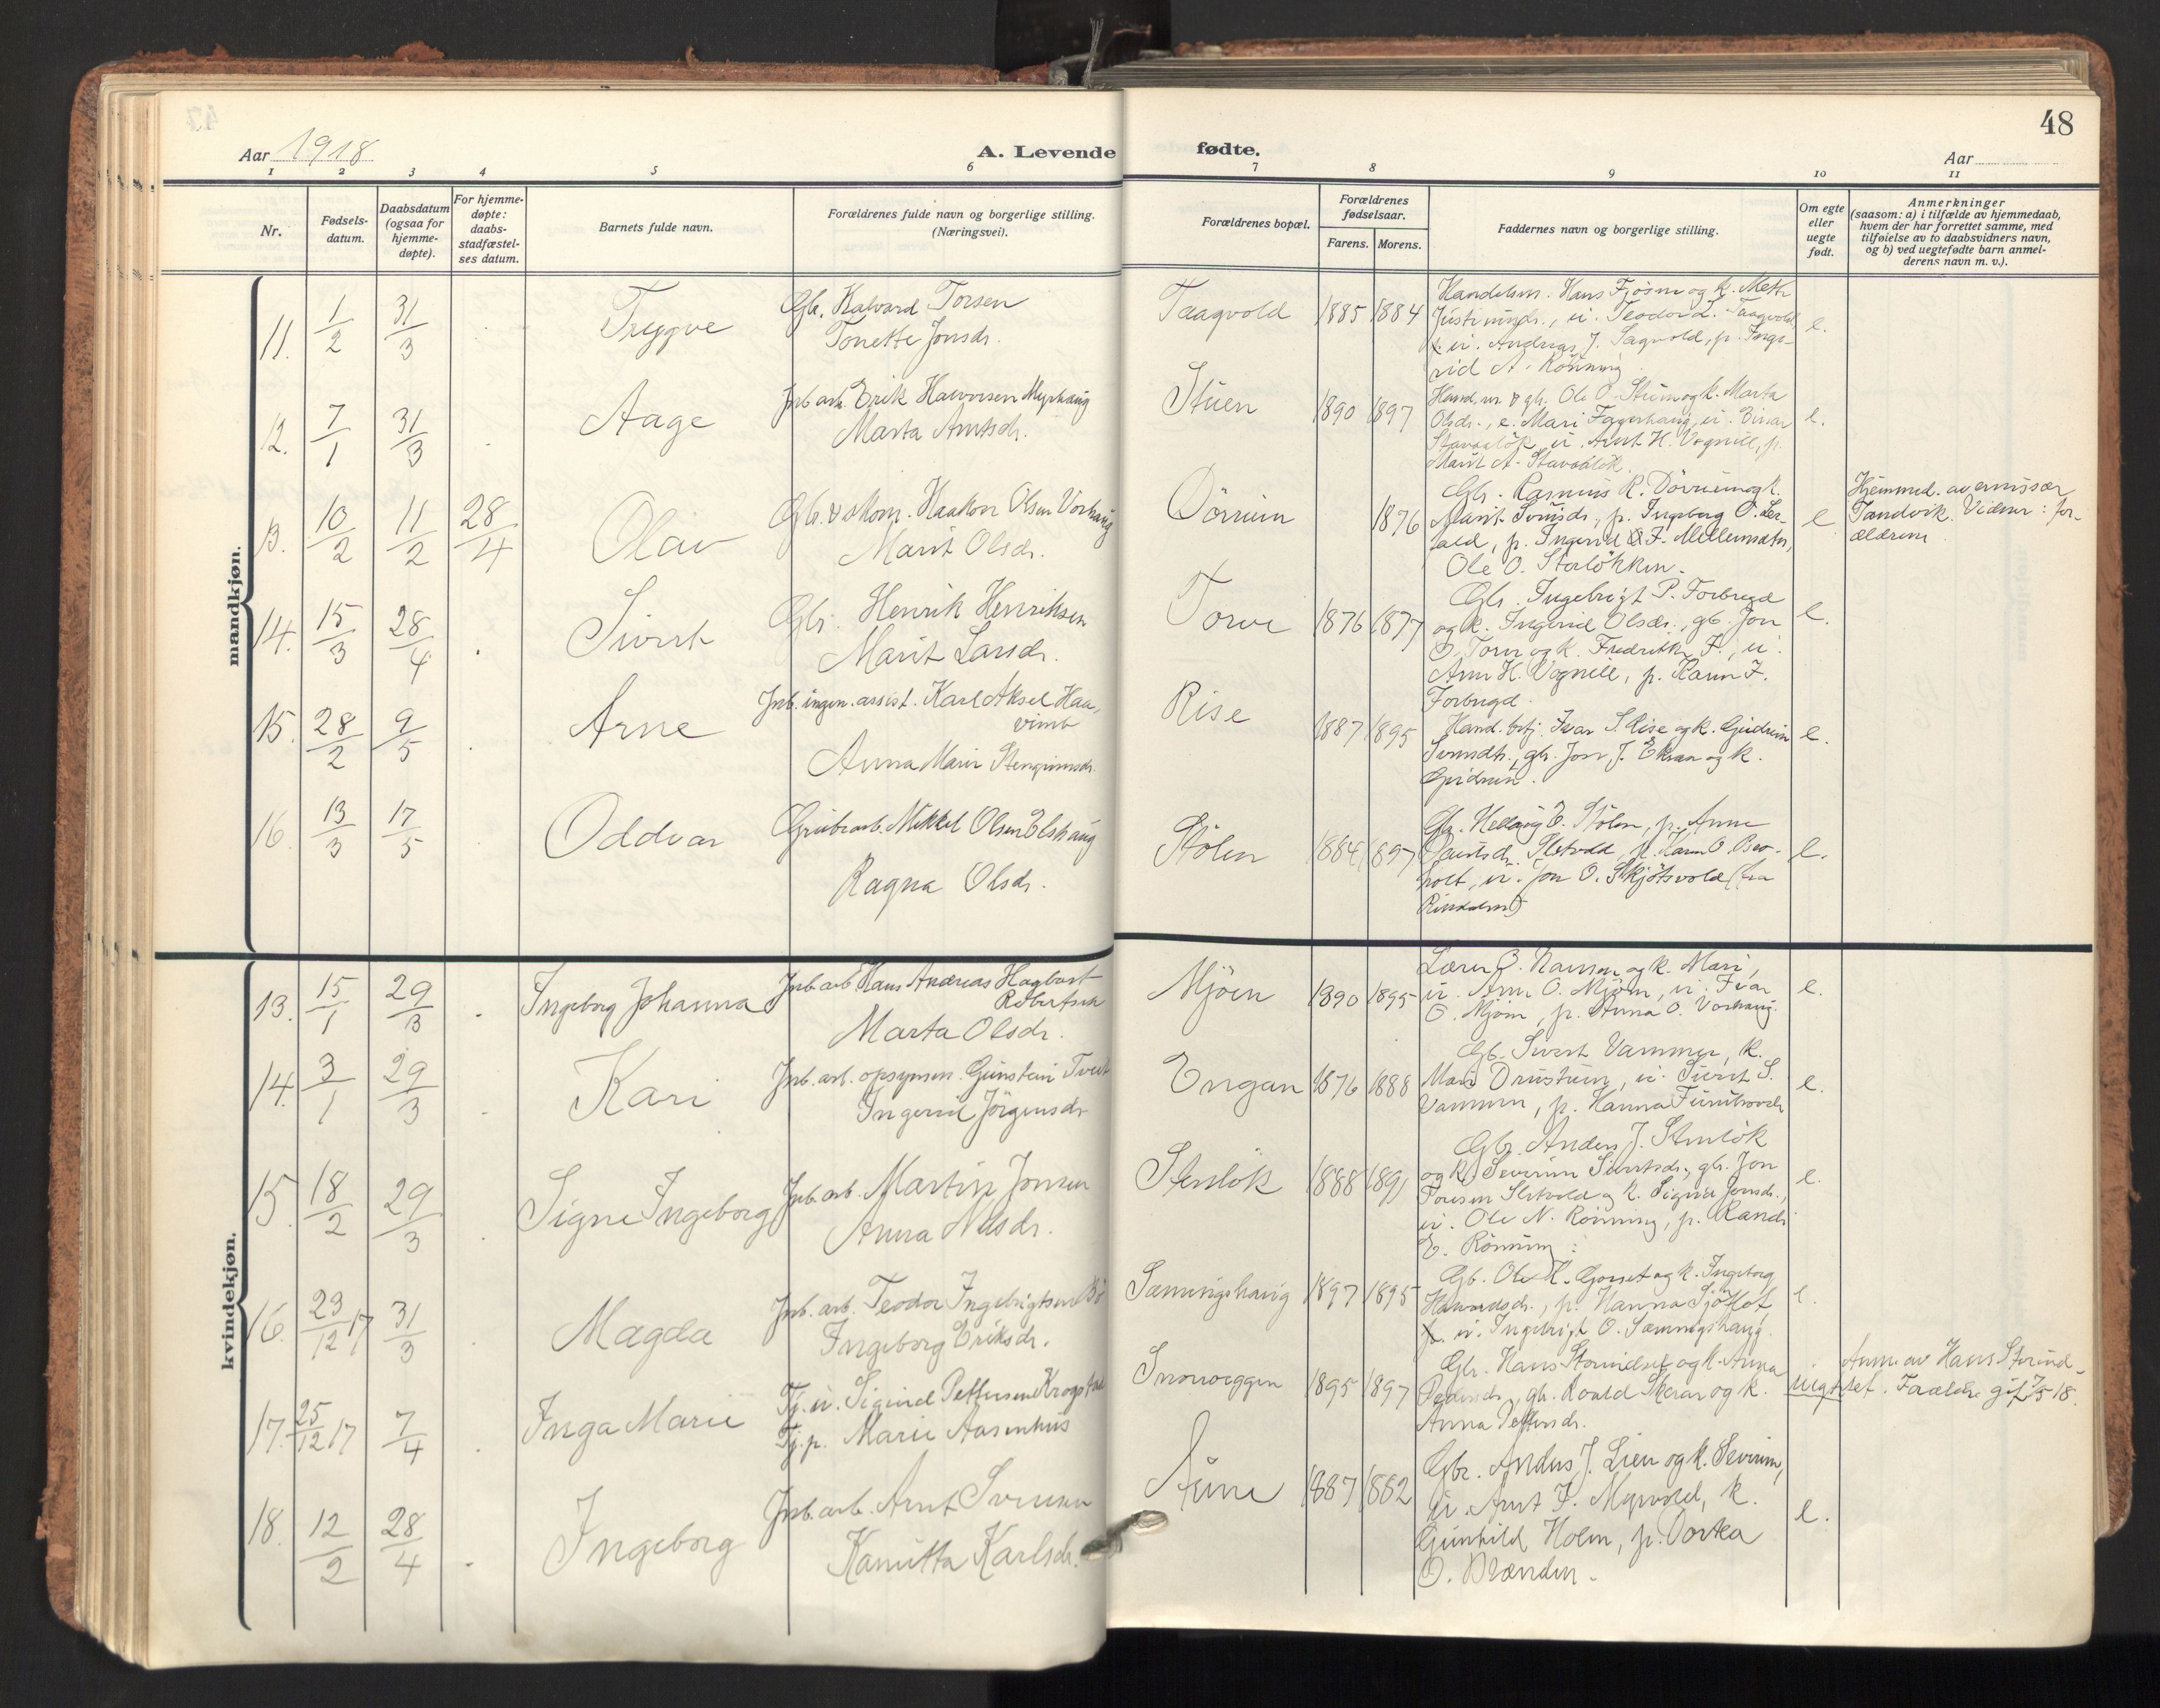 48
Aar 1918
A. Levende fødte.
Aar
1 2 3 4 5 6 7 8 9 10 11
Nr.
Fødsels-
datum.
Daabsdatum
(ogsaa for
hjemme-
døpte).
For hjemme-
døpte:
daabs-
stadfæstel-
ses datum.
Barnets fulde navn.
Forældrenes fulde navn og borgerlige stilling.
(Næringsvei).
Forældrenes bopæl.
Forældrenes
fødselsaar.
Farens. Morens.
Faddernes navn og borgerlige stilling.
Om egte
eller
uegte
født.
Anmerkninger
(saasom: a) i tilfælde av hjemmedaab,
hvem der har forrettet samme, med
tilføielse av to daabsvidners navn,
og b) ved uegtefødte barn anmel-
derens navn m. v.).
mandkjøn.
11. 1/2 31/3 Trygve
Gbr. Halvard Torsen
Tonette Jonsdr.
Taagvold 1885 1884
Handelsm. Hans Fjøsne og k. Meth
Justinusdr., u. Teodor L. Taagvold,
u. Andreas J. Sagvold, p. Inge-
rid A. Rönning
e.
12. 7/1 31/3 Aage
Jnb. arb. Erik Halvorsen Myrhaug
Marta Arntsdr.
Stuen 1890 1897
Hand.m. & gbr. Ole O. Stuen og k. Marta
Olsdr., e. Mari Fagerhaug, u. Einar
Stavaslök, u. Arnt H. Vognill, p.
Marit A. Stavaslök.
e.
13. 10/2 11/2 28/4 Olav
Gbr. & skom. Haakon Olsen Vorhaug
Marit Olsdr.
Dörrum 1876
Gbr. Rasmus R. Dörrum og k.
Marit Sivertsdr., p. Ingeborg O.
p. Ingerid F. Mellemsæter,
Ole O. Storlökken.
e
Hjemmed. av emissær
Tandvik. Vidner: for-
ældrene
14. 15/3 28/4 Sivert
Gbr. Henrik Henriksen
Marit Larsdr.
Torve 1876 1877
Gbr. Ingebrigt P. Forbregd
og k. Ingerid Olsdr., gb. Jon
O. Torve og k. Fredrikke F., u.
Arne H. Vognill, p. Karen F.
Forbregd.
e.
15. 28/2 9/5 Arne
Jnb. ingen. assist. Karl Aksel Haa-
Anna Marie Stengrimsdr.
Rise 1887 1895
Hand. betj. Ivar S. Rise og k. Gudrun
gbr. Jon J. Ekran og k.
Gudrun.
e.
16. 13/3 17/5 Oddvar
Grubearb. Mikkel Olsen Elshaug
Ragna Olsdr.
Stölen 1884 1897
Gbr. Hellaug E. Stölen, p. Anne
Sletvold, p. Karen O. Bro-
holt, u. Jon O. Skjötsvold (fra
Rindalen)
e.
kvindekjøn.
13. 15/1 29/3 Ingeborg Johanna
Jnb. arb. Hans Andreas Hagbart
Robertsen
Marta Olsdr.
Mjöen 1890 1895
Lærer O. Hansen og k. Mari,
u. Arne O. Mjöen, u. Ivar
O. Mjöen, p. Anna O. Vorhaug.
e.
14. 3/1 29/3 Kari
Jnb. arb. opsynsm. Gunstein Tveit
Ingerid Jörgensdr
Engan 1876 1888
Gb. Sivert Vammer, k.
Mari Drustuen, u. Sivert S.
Vammen, p. Hanna
e.
15. 18/2 29/3 Signe Ingeborg
Jnb. arb. Martin Jonsen
Anna Nilsdr.
Stenlök 1888 1891
Gb. Anders J. Stenlök
og k. Severine Sivertsdr., gbr. Jon
Toresen Sletvold og k. Sigrid Jonsdr.,
u. Ole N. Rönning, p. Randi
E. Rönning.
e.
16. 23/12 17 31/3 Magda
Jnb. arb. Teodor Ingebrigtsen Bö
Ingeborg Eriksdr.
Sæmingshaug 1897 1895
Gb. Ole H. Gorset og k. Ingeborg
Halvordsdr., p. Hanna Sjöflot,
u. Ingebrigt O. Sæmingshaug.
e.
17. 25/12 17 7/4 Inga Marie
Tj. u. Sigurd Pettersen Krogstad
Tj. p. Marie Aasenhus
Snoveggen 1895 1897
Gbr. Hans Storindset og k. Anna
Pedersdr., gb. Roald Skeran og k.
Anna Pettersdr.
uegte
Anm. av Hans Storind-
set. Forældre gift 7/5 18.
18. 12/2 28/4 Ingeborg
Jnb. arb. Arnt Svensen
Kanutta Karlsdr.
Aune 1887 1882
Gbr. Anders J. Lien og k. Severine,
u. Arnt F. Myrvold, k.
Gunhild Holen, p. Dortea
O. Brænden.
e.